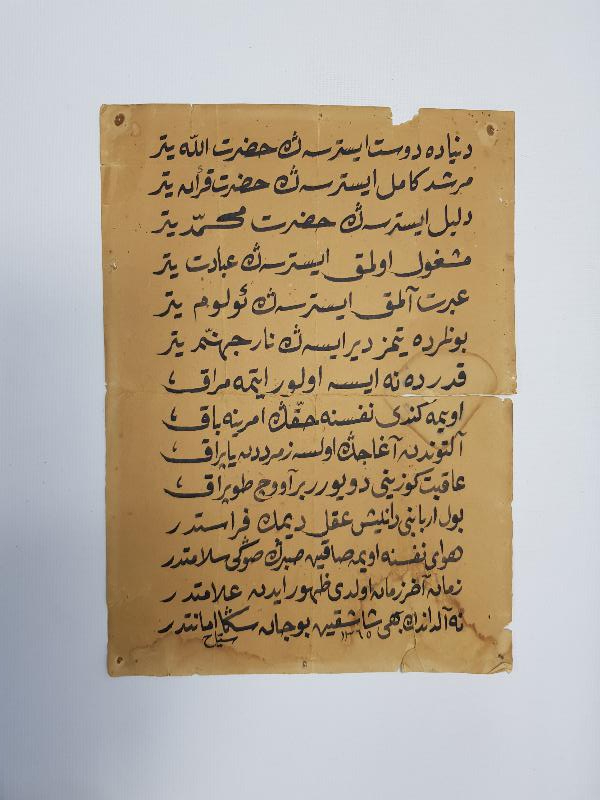 دنیاده دوست ایسترسه‌ڭ حضرت اللّه یتر
مرشد کامل ایسترسه‌ڭ حضرت قرآن یتر
دلیل ایسترسه‌ڭ حضرت محمّد یتر
مشغول اولمق ایسترسه‌ڭ عبادت یتر
عبرت آلمق ایسترسه‌ڭ ئولوم یتر
بونلرده یتمز دیرایسه‌ڭ نار جهنّم یتر
قدرده نه ایسه اولور ایتمه مراق،
اویمه کندی نفسنه حقّڭ امرینه باق،
آلتوندن آغاجڭ اولسه زمرددن یاپراق،
عاقبت کوزینی دویورر بر آووچ طوپراق،
بول اربابنی دانیش عقل دیمك فراستدر
هوای نفسنه اویمه صاقین صبرڭ صوڭی سلامتدر
زمان آخر زمان اولدی ظهور ایدن علامتدر
نه آلداندڭ بهی شاشقین بوجان سڭا امانتدر
١٣٦٥
سیّاح